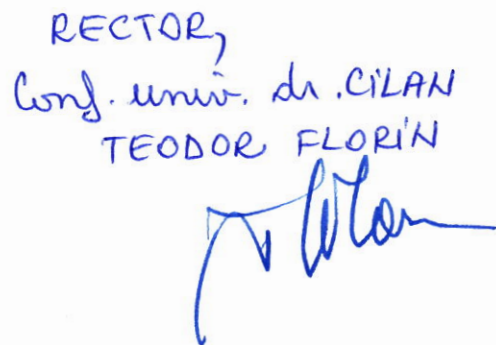 RECTOR,
Conf. univ. dr. CILAN
TEODOR FLORIN